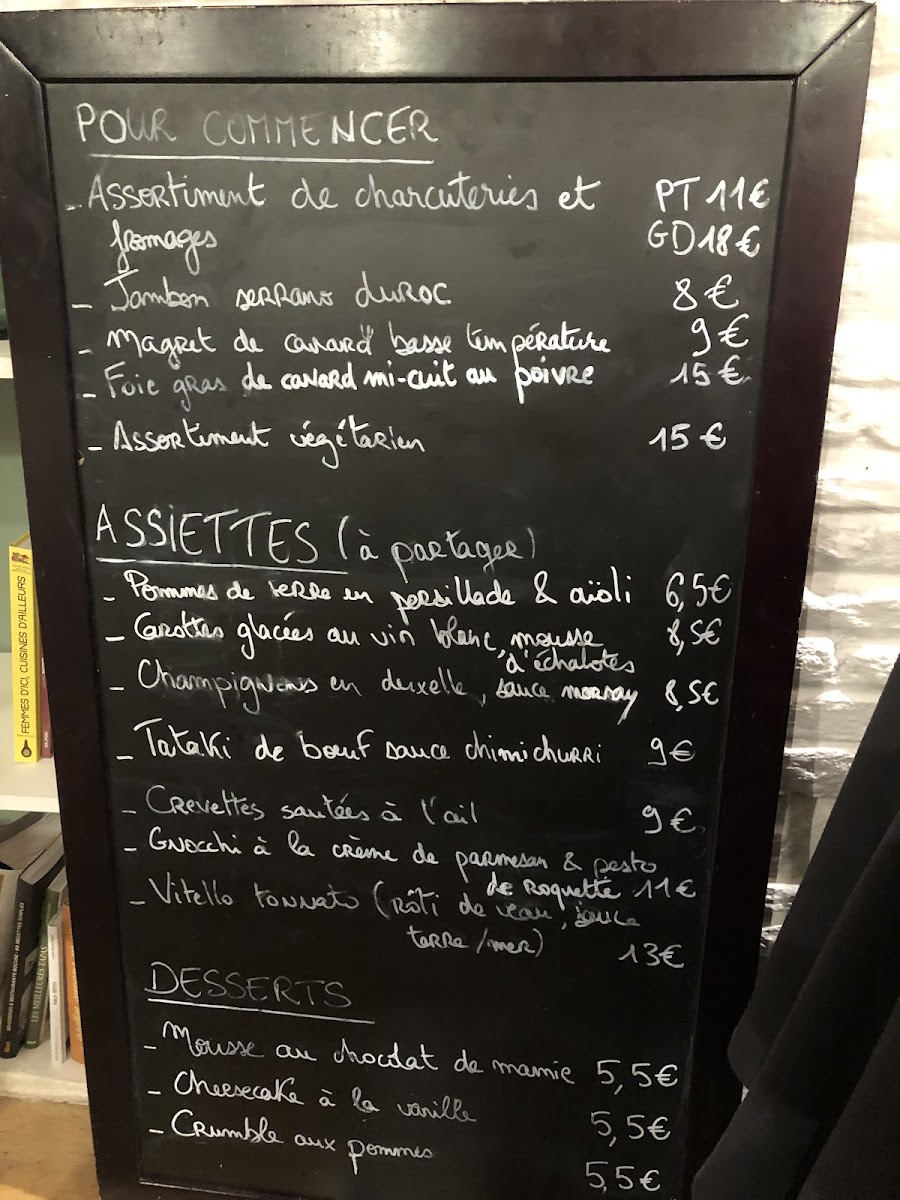 POUR COMMENCER
- Assortiment de charcuteries et PT 11€
fromages GD 18€
- Jambon serrano duroc 8€
- Magret de canard basse température 9€
- Foie gras de canard mi-cuit au poivre 15€
- Assortiment végétarien 15€
ASSIETTES (à partager)
- Pommes de terre en persillade & aïoli 6,5€
- Carottes glacées au vin blanc, mousse 8,5€
d'échalotes
- Champignons en duxelle, sauce mornay 8,5€
- Tataki de bœuf sauce chimichurri 9€
- Crevettes sautées à l'ail 9€
- Gnocchi à la crème de parmesan & pesto
de roquette 11€
- Vitello tonnato (rôti de veau, sauce
terre/mer) 13€
DESSERTS
- Mousse au chocolat de mamie 5,5€
- Cheesecake à la vanille 5,5€
- Crumble aux pommes 5,5€
FEMMES D'ICI, CUISINES D'AILLEURS
LES MEILLEURES TAPAS